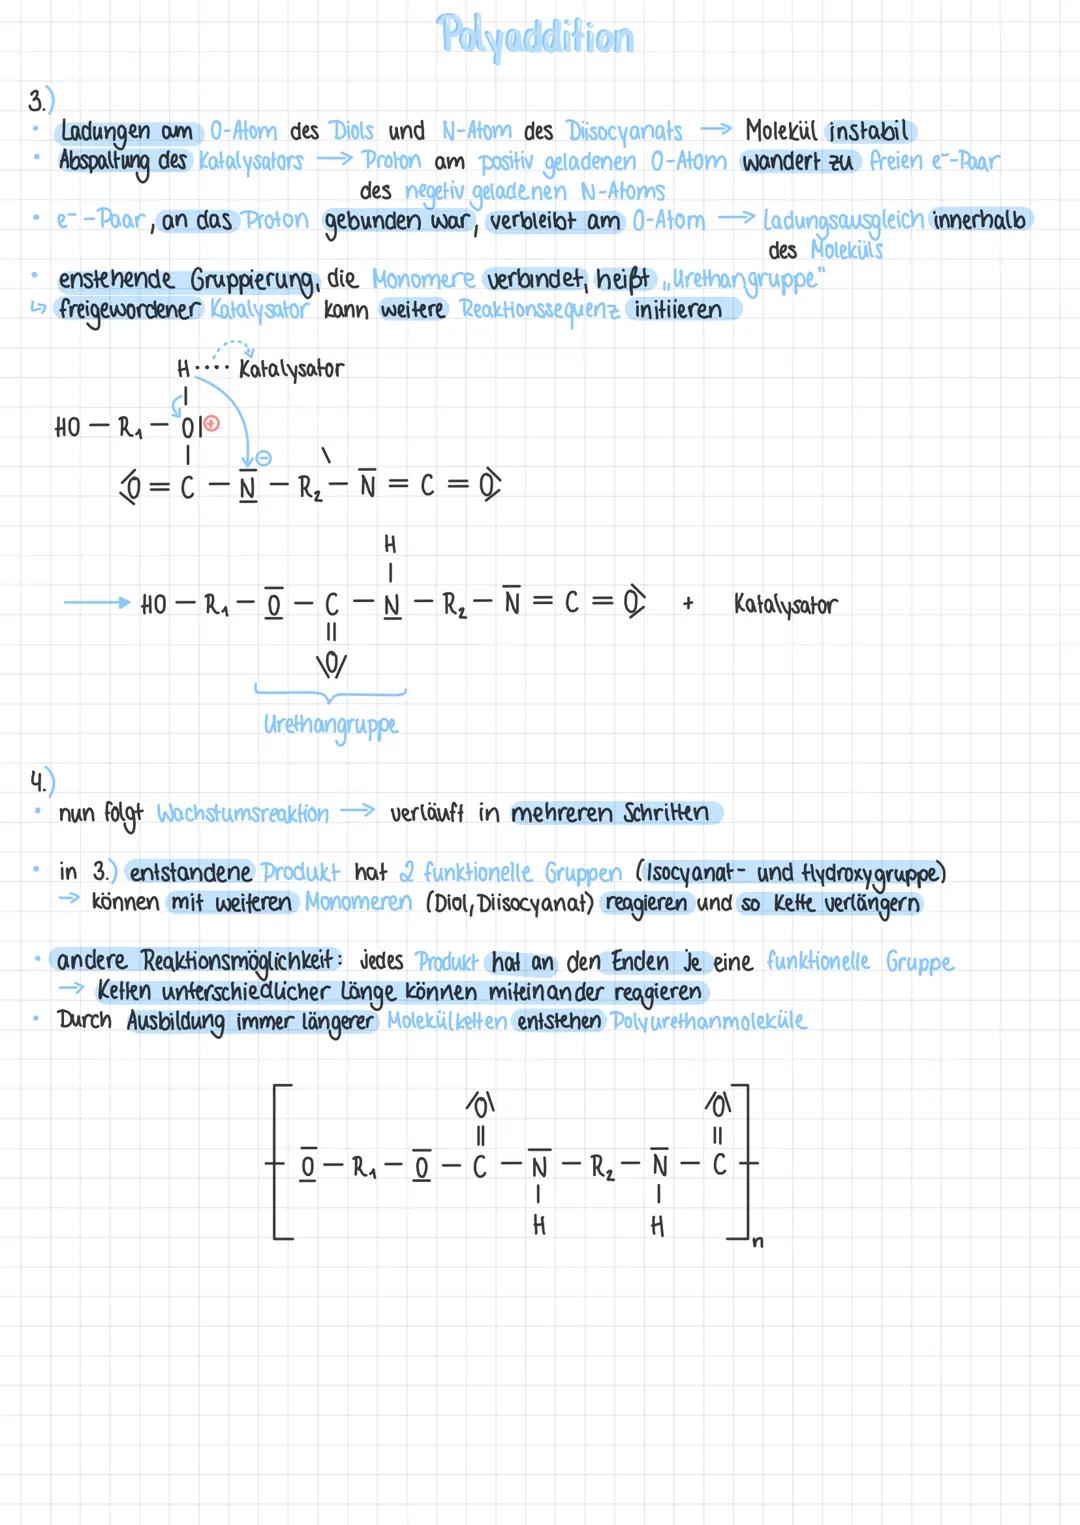 Polyaddition
3.)
• Ladungen am O-Atom des Diols und N-Atom des Diisocyanats → Molekül instabil
• Abspaltung des Katalysators → Proton am positiv geladenen O-Atom wandert zu freien e⁻-Paar
des negetiv geladenen N-Atoms
• e⁻-Paar, an das Proton gebunden war, verbleibt am O-Atom → Ladungsausgleich innerhalb
des Moleküls
• enstehende Gruppierung, die Monomere verbindet, heißt „Urethangruppe"
↳ freigewordener Katalysator kann weitere Reaktionssequenz initiieren
H···· Katalysator
|
HO — R₁ — O| ⊕
| ⊖
O = C — N — R₂ — N = C = O
H
|
→ HO — R₁ — O — C — N — R₂ — N = C = O + Katalysator
||
O
Urethangruppe
4.)
• nun folgt Wachstumsreaktion → verläuft in mehreren Schritten
• in 3.) entstandene Produkt hat 2 funktionelle Gruppen (Isocyanat- und Hydroxygruppe)
→ können mit weiteren Monomeren (Diol, Diisocyanat) reagieren und so Kette verlängern
• andere Reaktionsmöglichkeit: jedes Produkt hat an den Enden je eine funktionelle Gruppe
→ Ketten unterschiedlicher Länge können miteinander reagieren
• Durch Ausbildung immer längerer Molekülketten entstehen Polyurethanmoleküle
O O
|| ||
O — R₁ — O — C — N — R₂ — N — C
| |
H H
n